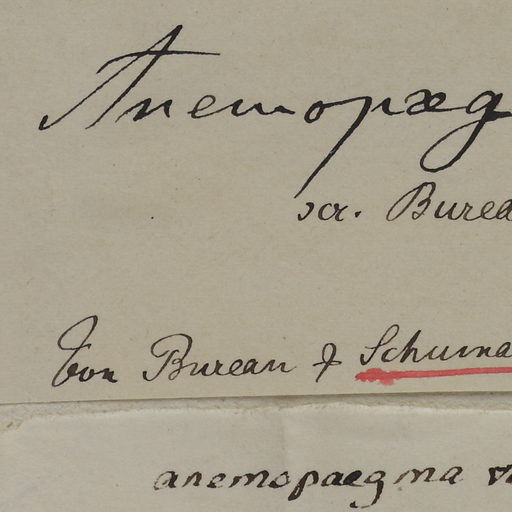 Anemopæg
scr. Burea
Von Bureau & Schuma
anemopaegma v